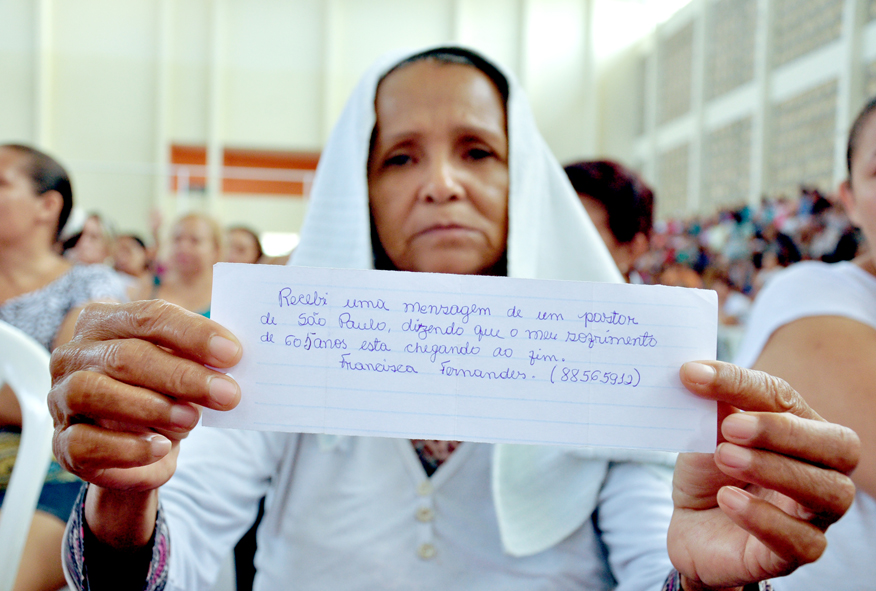 Recebi uma menzagem de um pastor
de São Paulo, dizendo que o meu sofrimento
de anos esta chegando ao fim.
Francisca Fernandes. (88565912)